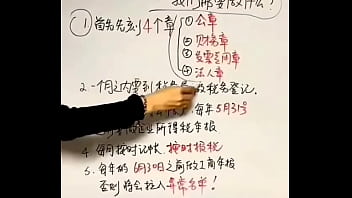 我们都要做什么?
① 首先先刻4个章
① 公章
② 财务章
③ 发票专用章
④ 法人章
2. 一个月之内要到税务 税务登记.
每年5月31号
所得税年报
4. 每月按时记帐, 按时报税
5. 每年的6月30日之前做工商年报
否则将会拉入异常名单!